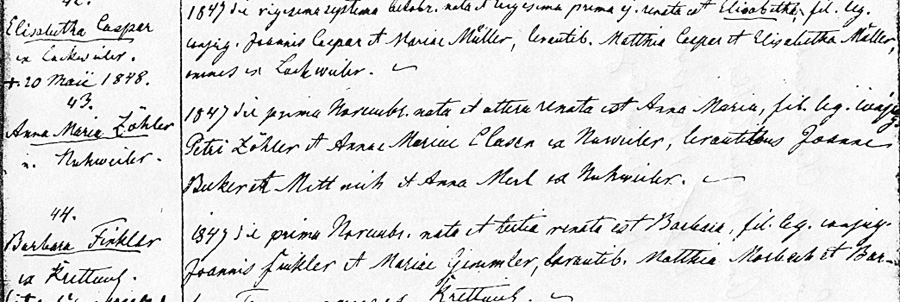 42.
Elisabetha Casper
ex Lockweiler.
+ 20 Maii 1848.
1847 die vigesima septima octobr. nata et vigesima prima ej. renata est Elisabetha, fil. leg.
conjug. Joannis Casper et Mariae Müller, levantib. Matthia Casper et Elisabetha Müller,
omnes ex Lockweiler.
43.
Anna Maria Zöhler
ex Nuhweiler.
1847 die prima Novembr. nata et altera renata est Anna Maria, fil. leg. conjug.
Petri Zöhler et Annae Mariae Clasen ex Nuhweiler, levantibus Joanne
Beker et Anna Merl ex Nuhweiler.
44.
Barbara Finkler
ex Krettnich.
1847 die prima Novembr. nata et tertia renata est Barbara, fil. leg. conjug.
Joannis Finkler et Mariae Gimmler, levantib. Matthia et Bar-
Krettnich.